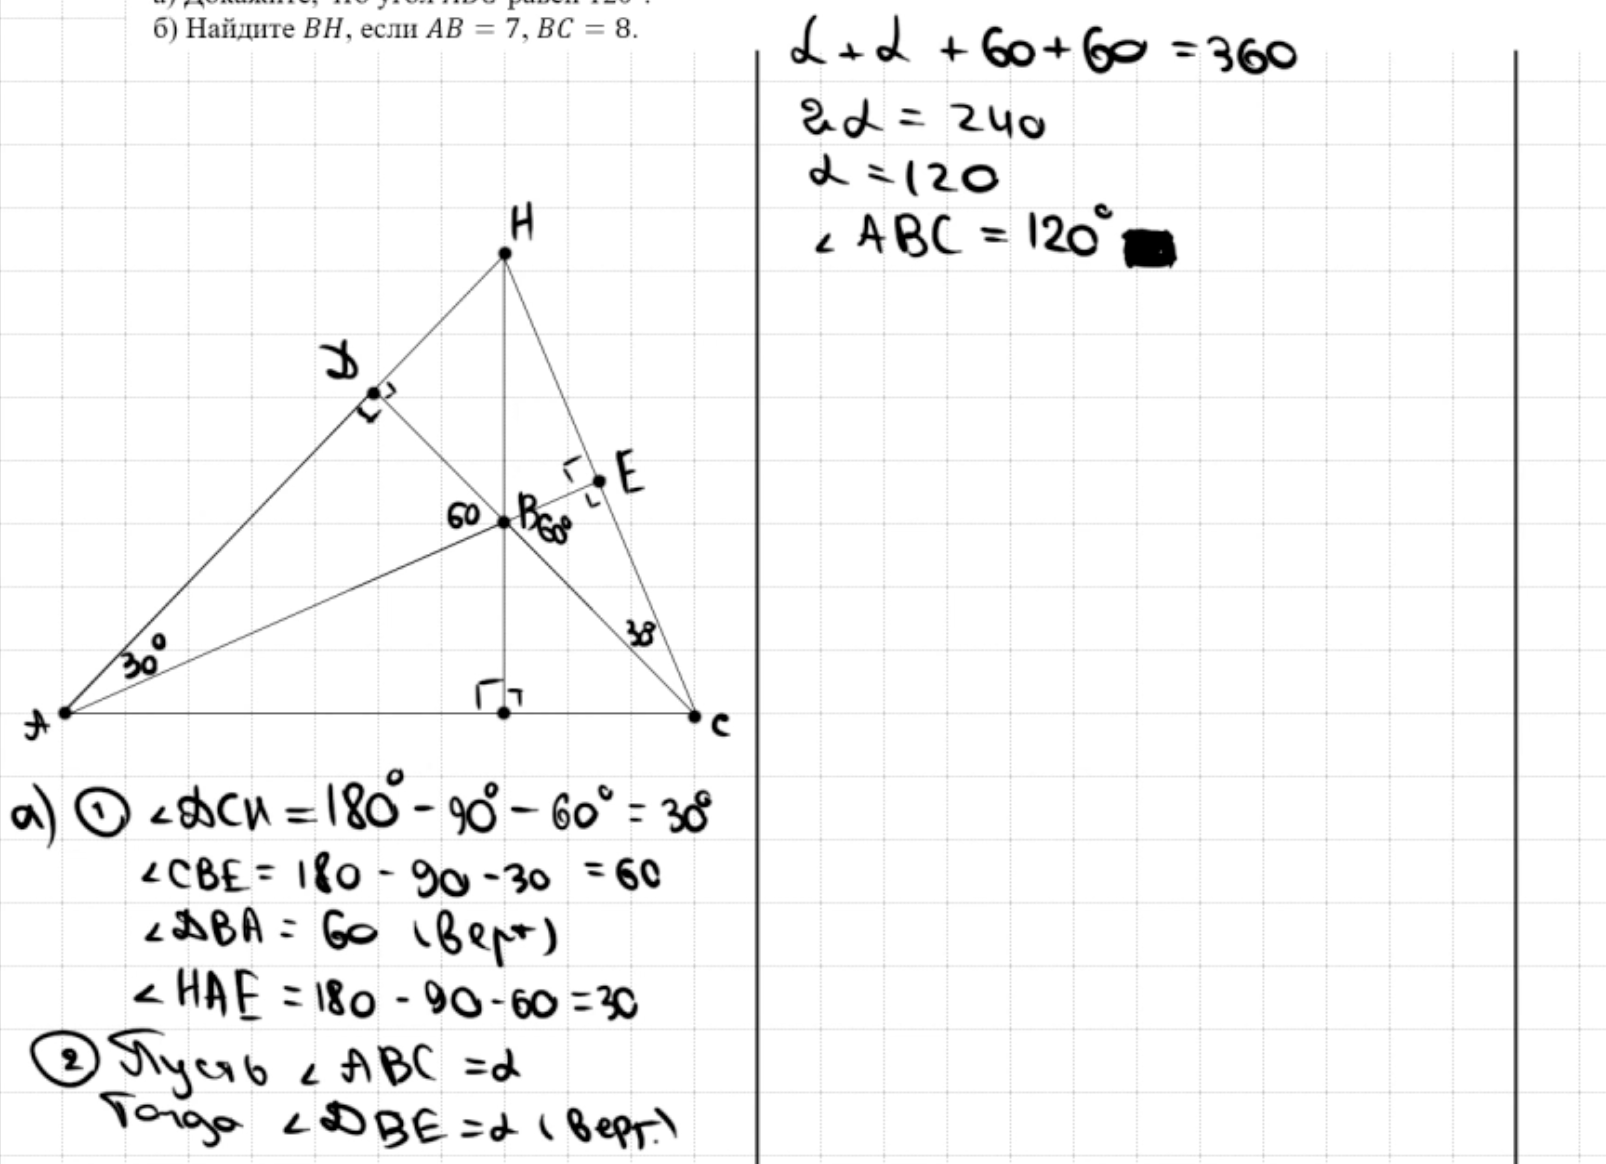 б) Найдите BH, если AB = 7, BC = 8.
H
D
E
60
B
60°
30°
30
A
C
а) ① ∠DCH = 180° - 90° - 60° = 30°
∠CBE = 180 - 90 - 30 = 60
∠DBA = 60 (верт)
∠HAE = 180 - 90 - 60 = 30
② Пусть ∠ABC = α
Тогда ∠DBE = α (верт.)
α + α + 60 + 60 = 360
2α = 240
α = 120
∠ABC = 120°